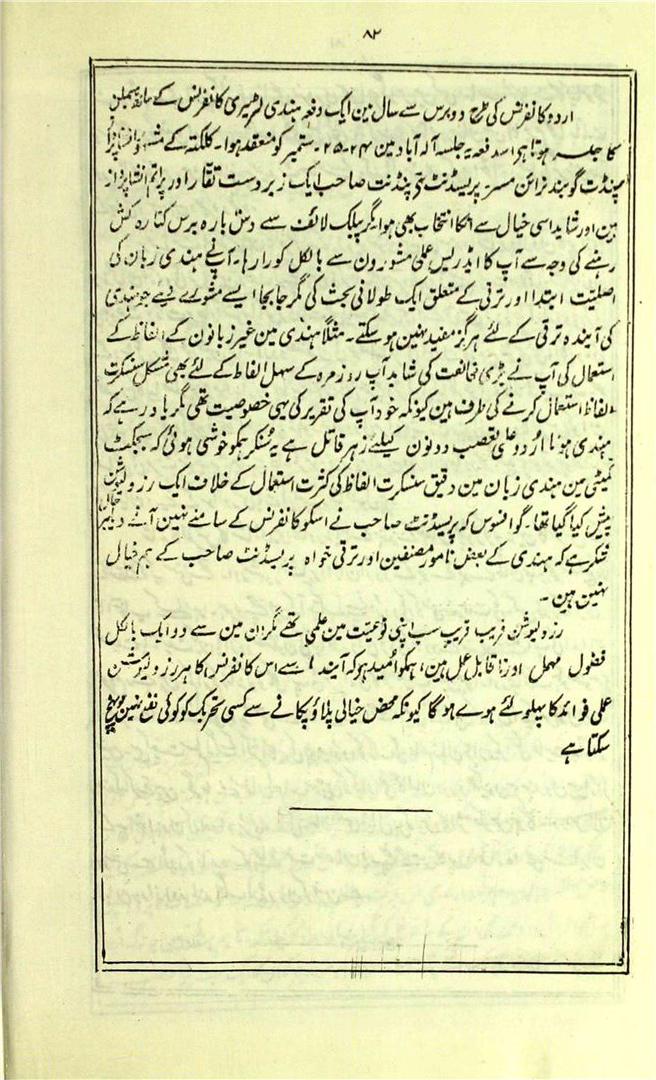 ۸۲
اردو کانفرنس کی طرح دو برس سے سال مین ایک دفعہ ہندی لٹریری کانفرنس کے ساتھ
کا جلسہ ہوتا ہی اس دفعہ یہ جلسہ آلہ آباد مین ۲۴-۲۵ ستمبر کو منعقد ہوا۔ کلکتہ کے مشہور
پنڈت گوبند نرائن مسر۔ پریسڈنٹ تھے پنڈت صاحب ایک زبردست نقّار اور پراتم انشا پرداز
ہین اور شاید اسی خیال سے انکا انتخاب بھی ہوا مگر پبلک لائف سے دس بارہ برس کنارہ کش
رہنے کی وجہ سے آپ کا اڈریس علمی مشورون سے بالکل کورا رہا۔ آپنے ہندی زبان کی
اصلیت ابتدا اور ترقی کے متعلق ایک طولانی بحث کی مگر جابجا ایسے مشورے دیے جو ہندی
کی آیندہ ترقی کے لئے ہرگز مفید نہین ہو سکتے۔ مثلاً ہندی مین غیر زبانون کے الفاظ کے
استعمال کی آپ نے بڑی مخالفت کی شاید آپ روزمرہ کے سہل الفاظ کے لئے بھی مشکل سنسکرت
الفاظ استعمال کرنے کی طرف ہین کیونکہ خود آپ کی تقریر کی یہی خصوصیت تھی مگر یاد رہے کہ
ہندی ہو یا اردو علمی تعصب دونون کیلئے زہر قاتل ہے یہ سُنکر ہمکو خوشی ہوئی کہ سبجکٹ
کمیٹی مین ہندی زبان مین دقیق سنسکرت الفاظ کی کثرت استعمال کے خلاف ایک رزولیوشن
پیش کیا گیا تھا۔ گو افسوس کہ پریسڈنٹ صاحب نے اسکو کانفرنس کے سامنے نہین آنے دیا
شکر ہے کہ ہندی کے بعض نامور مصنفین اور ترقی خواہ پریسڈنٹ صاحب کے ہم خیال
نہین ہین۔
رزولیوشن قریب قریب سب اپنی نوعیت مین علمی تھے مگر ان مین سے دو ایک بالکل
فضول مہمل اور ناقابل عمل ہین، ہمکو اُمید ہو کہ آیندہ سے اس کانفرنس کا ہر رزولیوشن
علمی فوائد کا پہلو لئے ہوے ہو گا کیونکہ محض خیالی پلاؤ پکانے سے کسی تحریک کو کوئی نفع نہین پہونچ
سکتا ہے